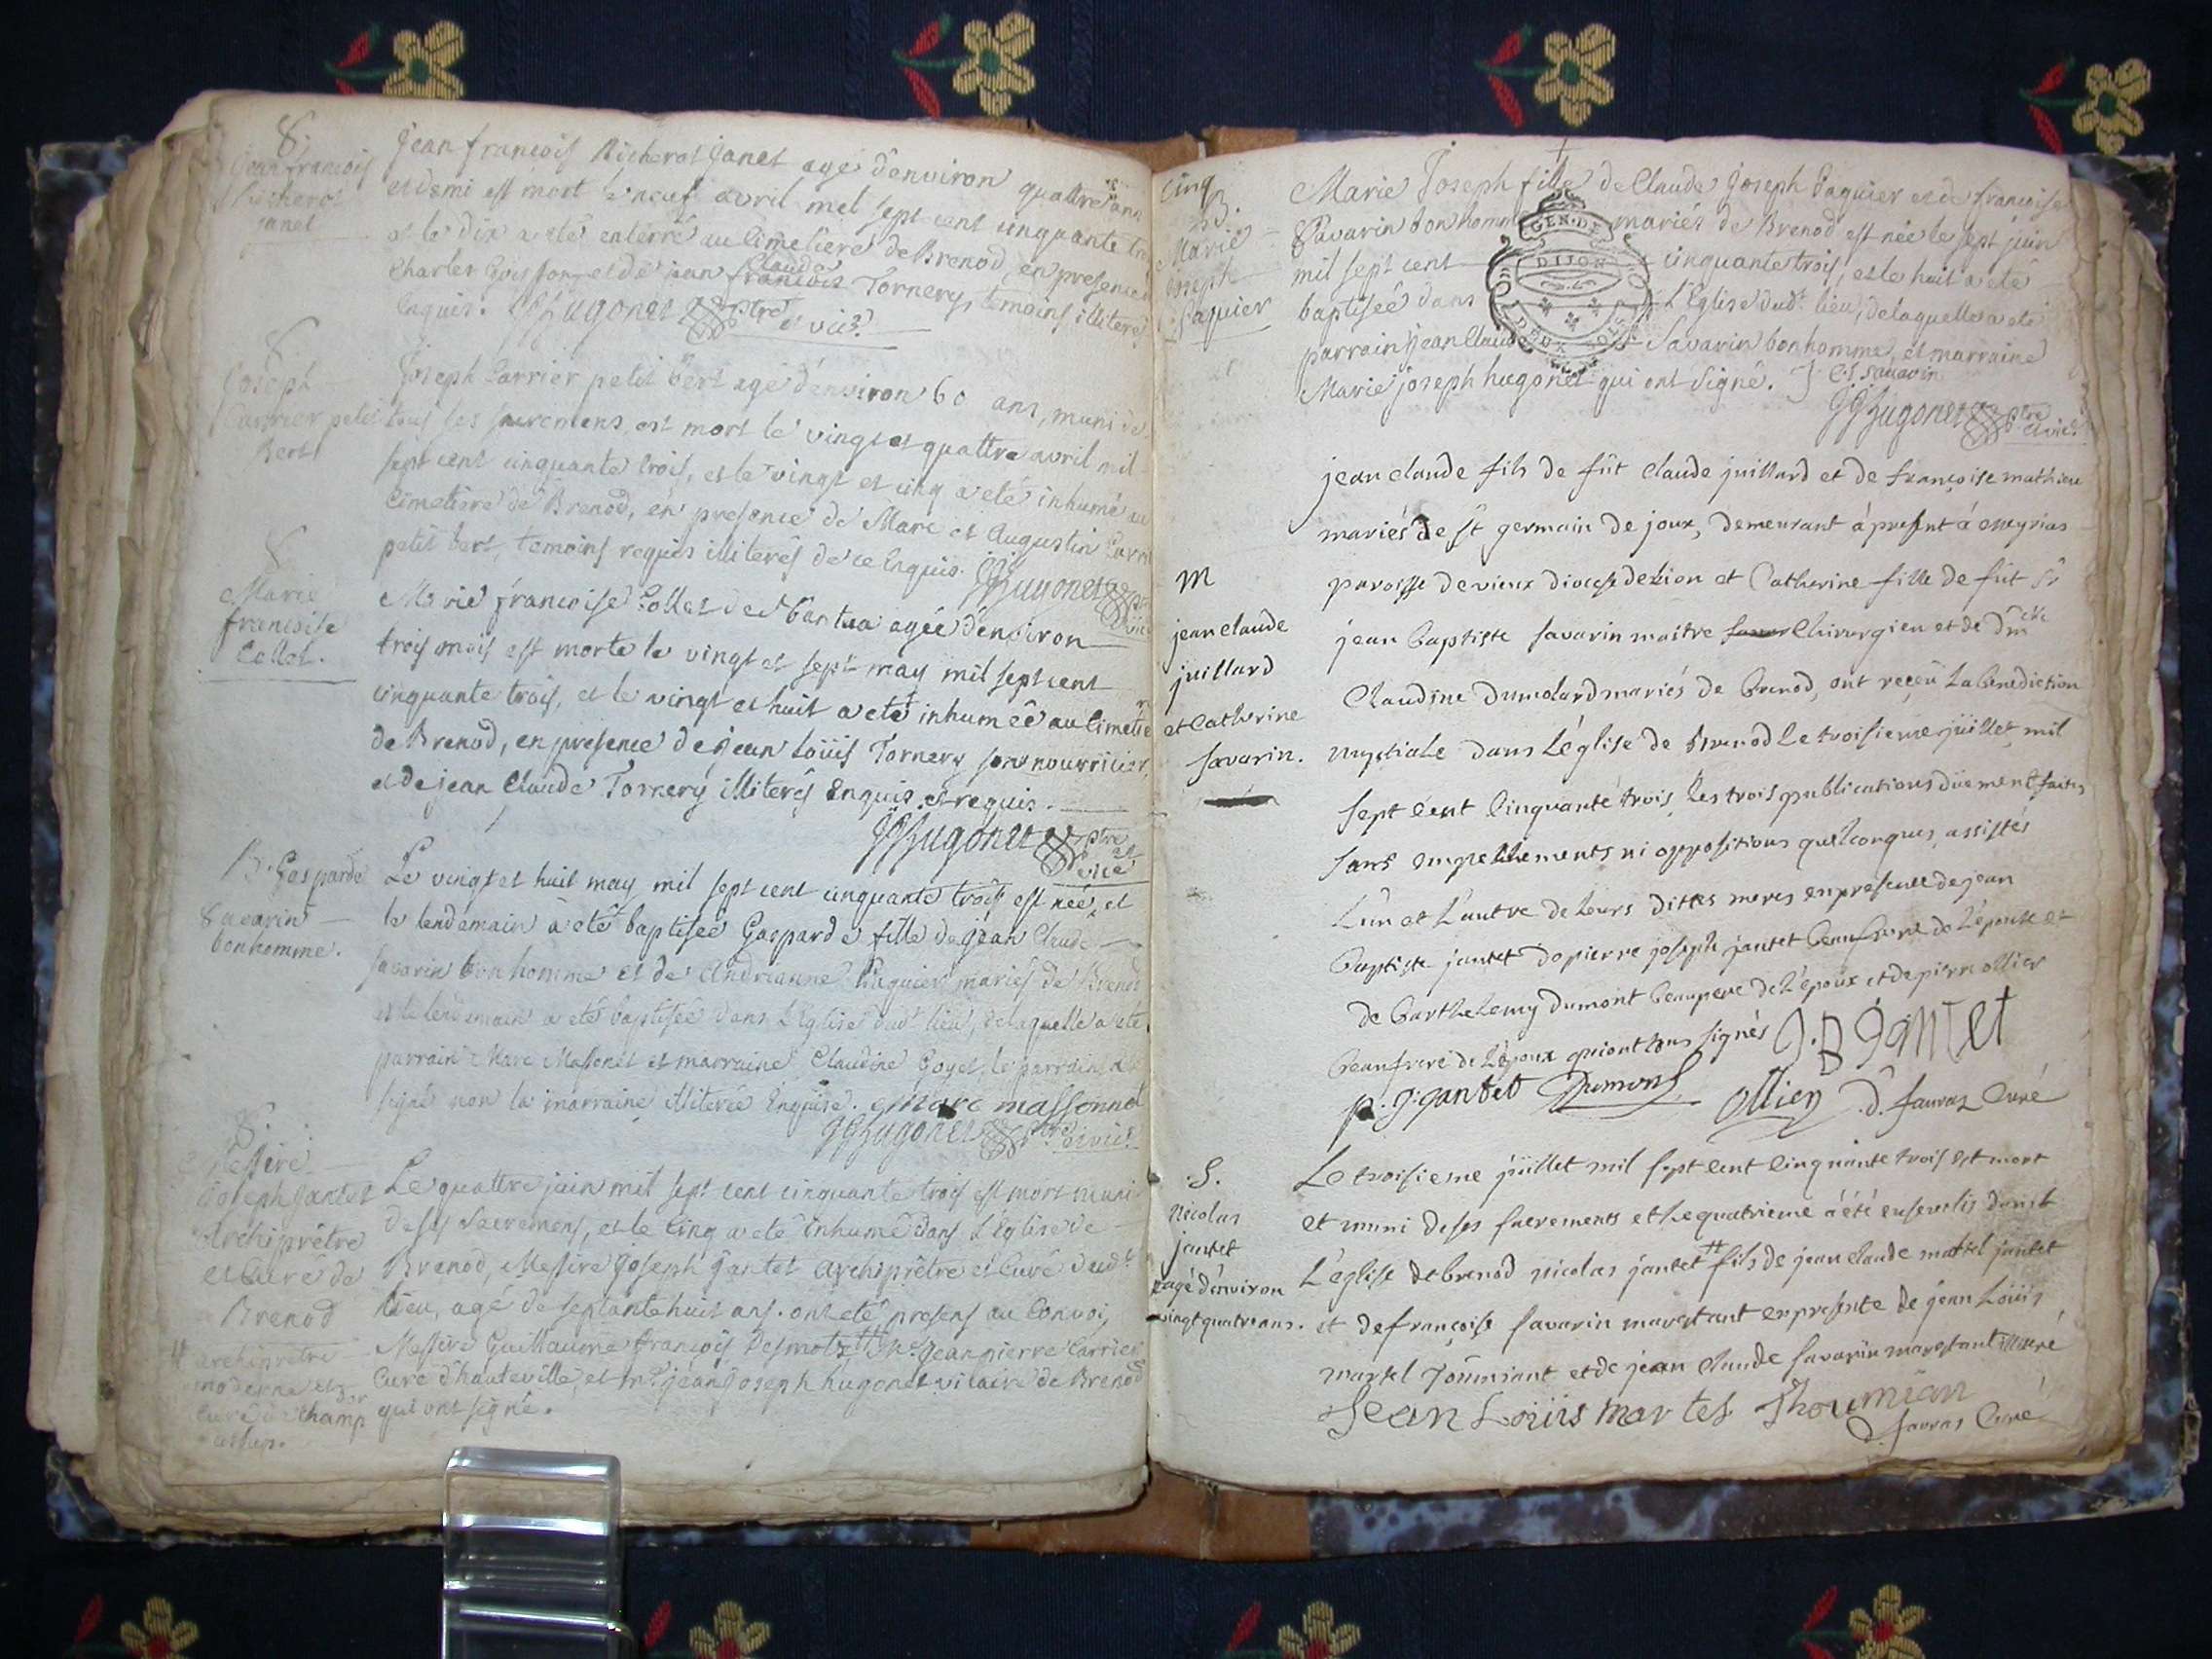 S.
jean francois
Richerot
janet
Jean francois Richerot Janet agé d'environ quattre ans
et demi est mort le neuf avril mil sept cent cinquante trois
et le dix a eté enterré au Cimetiere de Brenod en presence de
Charles et de jean francois Claude Tornery, temoins illiterés
Enquis. JJhugonet ptre
et vic.
S
Joseph
Carrier petit
Bert
Joseph Carrier petit bert agé d'environ 60 ans, muni de
tous ses sacremens est mort le vingt et quattre avril mil
sept cent cinquante trois, et le vingt et cinq a eté inhumé au
Cimetiere de Brenod, en presence de Marc et Augustin Carrier
petit bert, temoins requis illiterés de ce Enquis. JJhugonet
S
Marie
francoise
Collet.
Marie francoise Collet de agée d'environ
trois mois est morte le vingt et sept may mil sept cent
cinquante trois, et le vingt et huit a eté inhumée au Cimetiere
de Brenod, en presence de jean Loüis Tornery son nourricier,
et de jean Claude Tornery illiterés Enquis et requis.
JJhugonet ptre
et vic
B. Gasparde
Savarin
bonhomme.
Le vingt et huit may mil sept cent cinquante trois est née, et
le lendemain a eté baptisée Gasparde fille de jean Claude
savarin bonhomme et de Andreanne Paquier mariés de Brenod
et le lendemain a eté baptisée dans L'Eglise dudt lieu, de laquelle a eté
parrain Marc Massonet et marraine Claudine Goyet, le parrain a
signé non la marraine illiterée Enquise. Marc massonnet
JJhugonet ptre et vic.
S.
Messire
Joseph Jantet
Archiprêtre
et Curé de
Brenod
# archiprêtre
moderne et
curé de champ
Le quattre juin mil sept cent cinquante trois est mort muni
de ses Sacremens, et le cinq a eté inhumé dans L'Eglise de
Brenod, Messire Joseph Jantet Archiprêtre et Curé dudt
lieu, agé de septante huit ans. ont eté presens au Convoi,
Messire Guillaume francois Desmotz # Jean pierre Carrier
Curé d'hauteville, et mre jean Joseph hugonet vicaire de Brenod
qui ont signé.
cinq
B.
Marie
Joseph
Paquier
Marie Joseph fille de Claude Joseph Paquier et de francoise
Savarin bonhomme mariés de Brenod est née le sept juin
mil sept cent cinquante trois, et le huit a eté
baptisée dans L'Eglise dudt lieu, de laquelle a eté
parrain jean Claude Savarin bonhomme, et marraine
Marie joseph hugonet qui ont signé. C J Savarin
JJhugonet ptre
et vic.
GEN. DE
DIJON
DEUX SOLS
M
jean claude
juillard
et Catherine
Savarin.
jean claude fils de fût claude juillard et de françoise mathieu
mariés de st germain de joux, demeurant á present á
paroisse de vieux diocese de Lion et Catherine fille de fût Sr
jean Baptiste Savarin maître Chirurgien et de
Claudine Dumolard mariés de Brenod, ont reçeû La Benediction
nuptiale dans L'église de Brenod Le troisieme juillet mil
sept cent Cinquante trois, Les trois publications düement faites
sans empechements ni oppositions quelconques, assistés
L'un et L'autre de Leurs dittes meres en presence de jean
Baptiste jantet de pierre joseph jantet Beaufrere de L'épouse et
de BartheLemy dumont Beaupere de L'époux et de pierre ollier
Beaufrere de L'époux qui ont tous signés J. B Jantet
p. j. jantet Dumont ollier D. favraz Curé
S.
nicolas
jantet
agé d'environ
vingt quatre ans.
Le troisieme juillet mil sept cent Cinquante trois est mort
et muni de ses sacrements et Le quatrieme á été ensevelis dans
L'église de brenod nicolas jantet # fils de jean claude martel jantet
et de françoise Savarin marestant en presence de jean Loüis
martel et de jean claude Savarin marestant illiteré
Jean Loüis martel Thoumian
D. favraz Curé